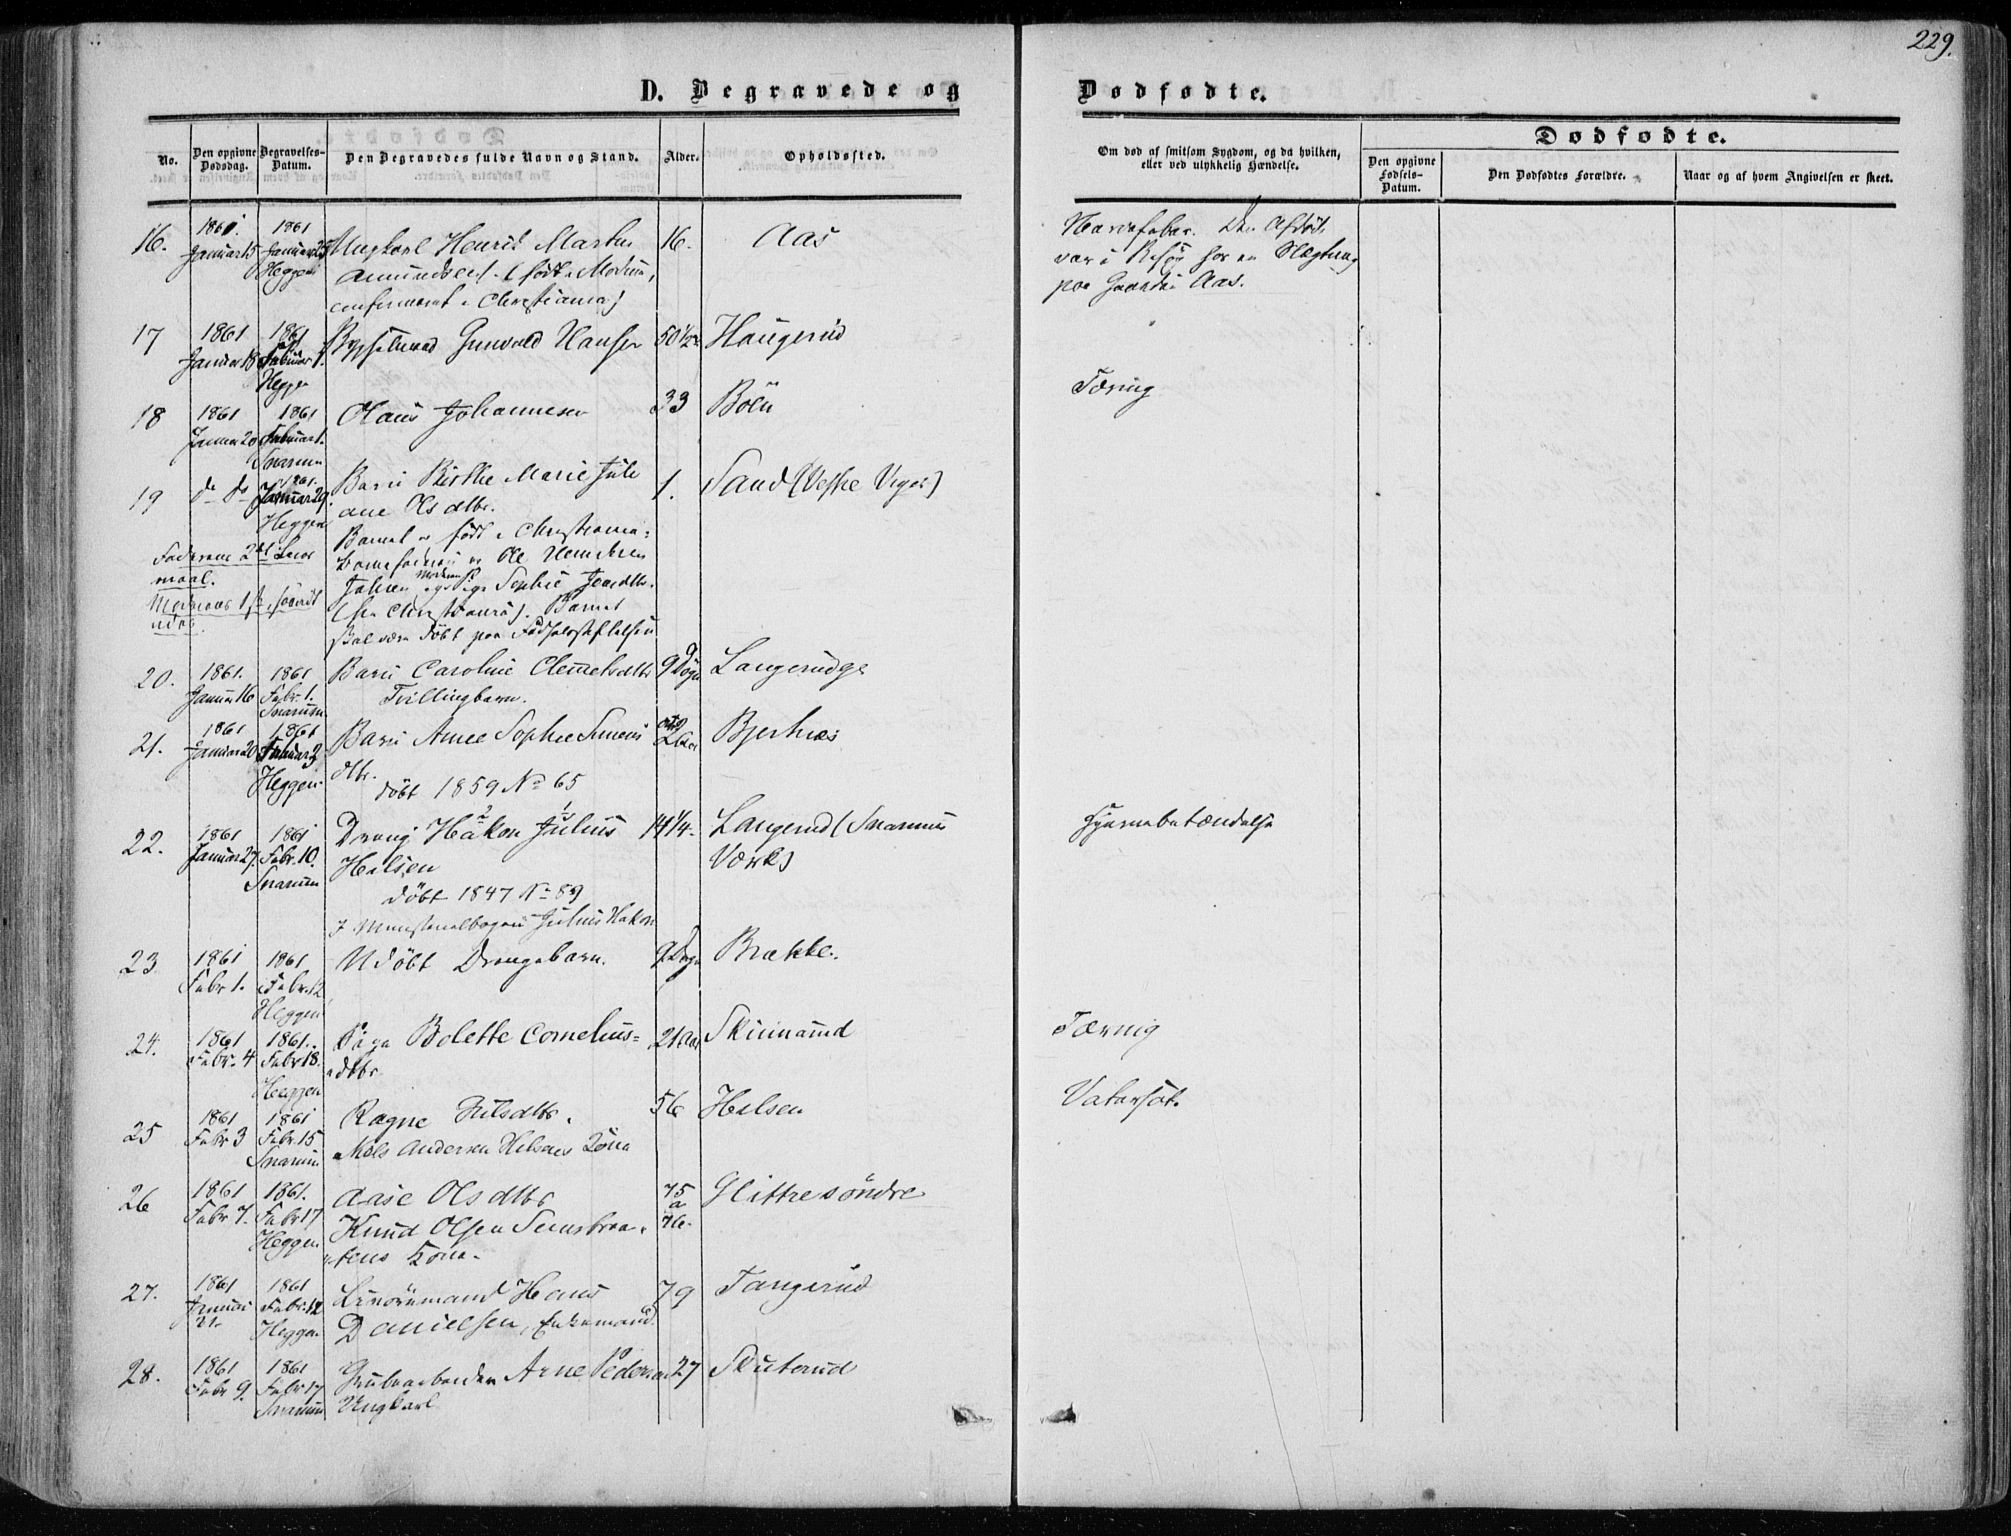 229.
D. Begravede og Dødfødte.
No.
Den opgivne Dødsdag.
Begravelses-Datum.
Den Begravedes fulde Navn og Stand.
Alder.
Opholdssted.
Om død af smitsom Sygdom, og da hvilken,
eller ved ulykkelig Hændelse.
Dødfødte.
Den opgivne Fødsels-Datum.
Den Dødfødtes Forældre.
Naar og af hvem Angivelsen er skeet.
16. 1861. Januar 15 1861 Januar 25 Heggen Ungkarl Henrik Martin 16. Aas
Amundsen (født i Modum,
confirmeret i Christiania)
Nervefeber. Den Afdøde
var i Besøg hos en Slægtning
paa Gaarden Aas.
17 1861 Januar 18 1861 Februar 1. Heggen Gunvald Hansen 50 1/2 Haugerud
18 1861 Januar 20 1861 Februar 1. Snarum Olaus Johannesen 33 Böen
Tæring
19 do do 1861. Januar 29. Heggen Barn Birthe Marie Juli 1. Sand (Vestre Viger)
ane Olsdtr.
Barnet er født i Christiania:
Barnefader er Ole
Moderen Pige Sophie
(fra Christiania). Barnet
skal være døbt paa Fødselsstiftelsen
Faderens 2det Leiermaal.
Moderens 1ste
20. 1861. Januar 16 1861 Febr. 1. Snarum Barn Caroline Clemetsdtr 9 Døgn Langerudge
Tvillingbarn.
21. 1861 Januar 20 1861 Februar 3 Heggen Barn Anne Sophie Simens Bjertnæs
dtr.
døbt 1859 No 65
22. 1861 Januar 27. 1861 Febr. 10. Snarum Dreng Håkon Julius 14 1/4. Langerud (Snarums
Værk)
Helsen
døbt 1847 No 89
I Ministerialbogen Julius Hakon
Hjernebetændelse
23 1861 Febr 1. 1861 Febr. 12 Heggen Udöbt Drengebarn. 9 Døgn Brække.
24. 1861 Febr. 4 1861. Febr 18. Heggen Pige Bolette Cornelius= 21 Aar Skinnarud
dtr
Tæring
25 1861 Febr 3 1861 Febr. 15 Snarum Ragne Nilsdtr. 56 Helsen
Niels Andersen Helsens Kone
Vatersot.
26 1861 Febr 7. 1861. Febr 17 Heggen Aase Olsdtr 75 a 76. Glittre söndre
Knud Olsen Semsbraa=
tens Kone.
27. 1861 Januar 21. 1861 Febr. 12 Heggen Hans 79 Tangerud
Danielsen, Enkemand.
28. 1861 Febr 9. 1861 Febr 17 Snarum Grubearbeider Arne Pedersen 27 Skuterud
Ungkarl